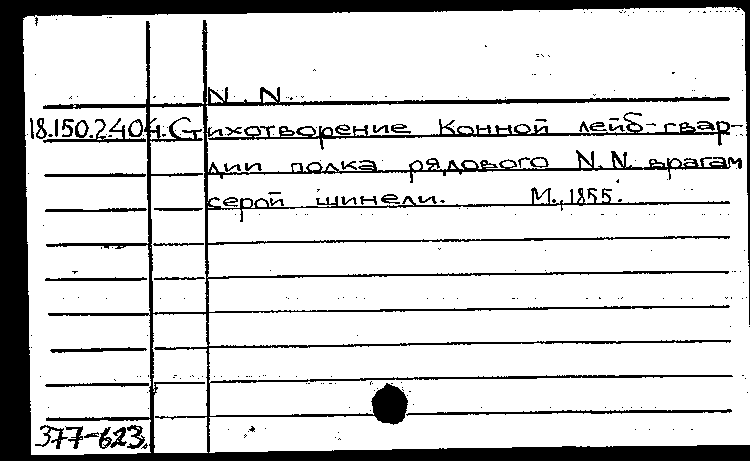 N. N.
18.150.2404. Стихотворение Конной лейб-гвар-
дии полка рядового N. N. врагам
серой шинели. М., 1855.
377-623.